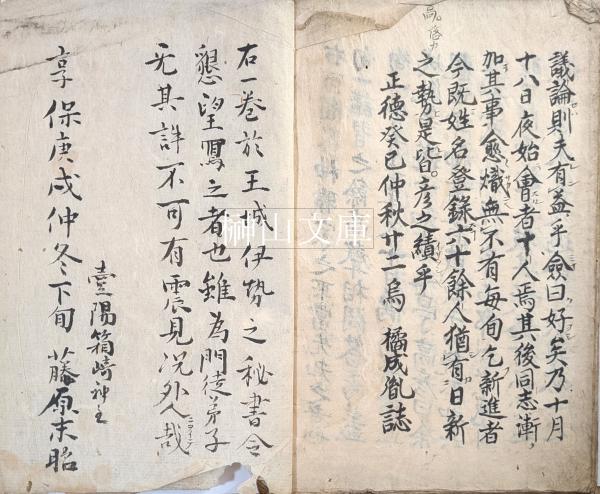 議論則大有益乎僉曰好矣乃十月
十八日夜始會者十人焉其後同志漸
加其事愈熾無不有每旬乞新進者
今既姓名登錄六十餘人猶有日新
之勢是皆彦之績乎
正德癸巳仲秋廿二烏 橘成胤誌
右一卷於王城伊勢之秘書令
懇望寫之者也雖為門徒弟子
无其許不可有震見况外人哉
壹陽箱崎神主
享保庚戌仲冬下旬 藤原末昭
榊山文庫